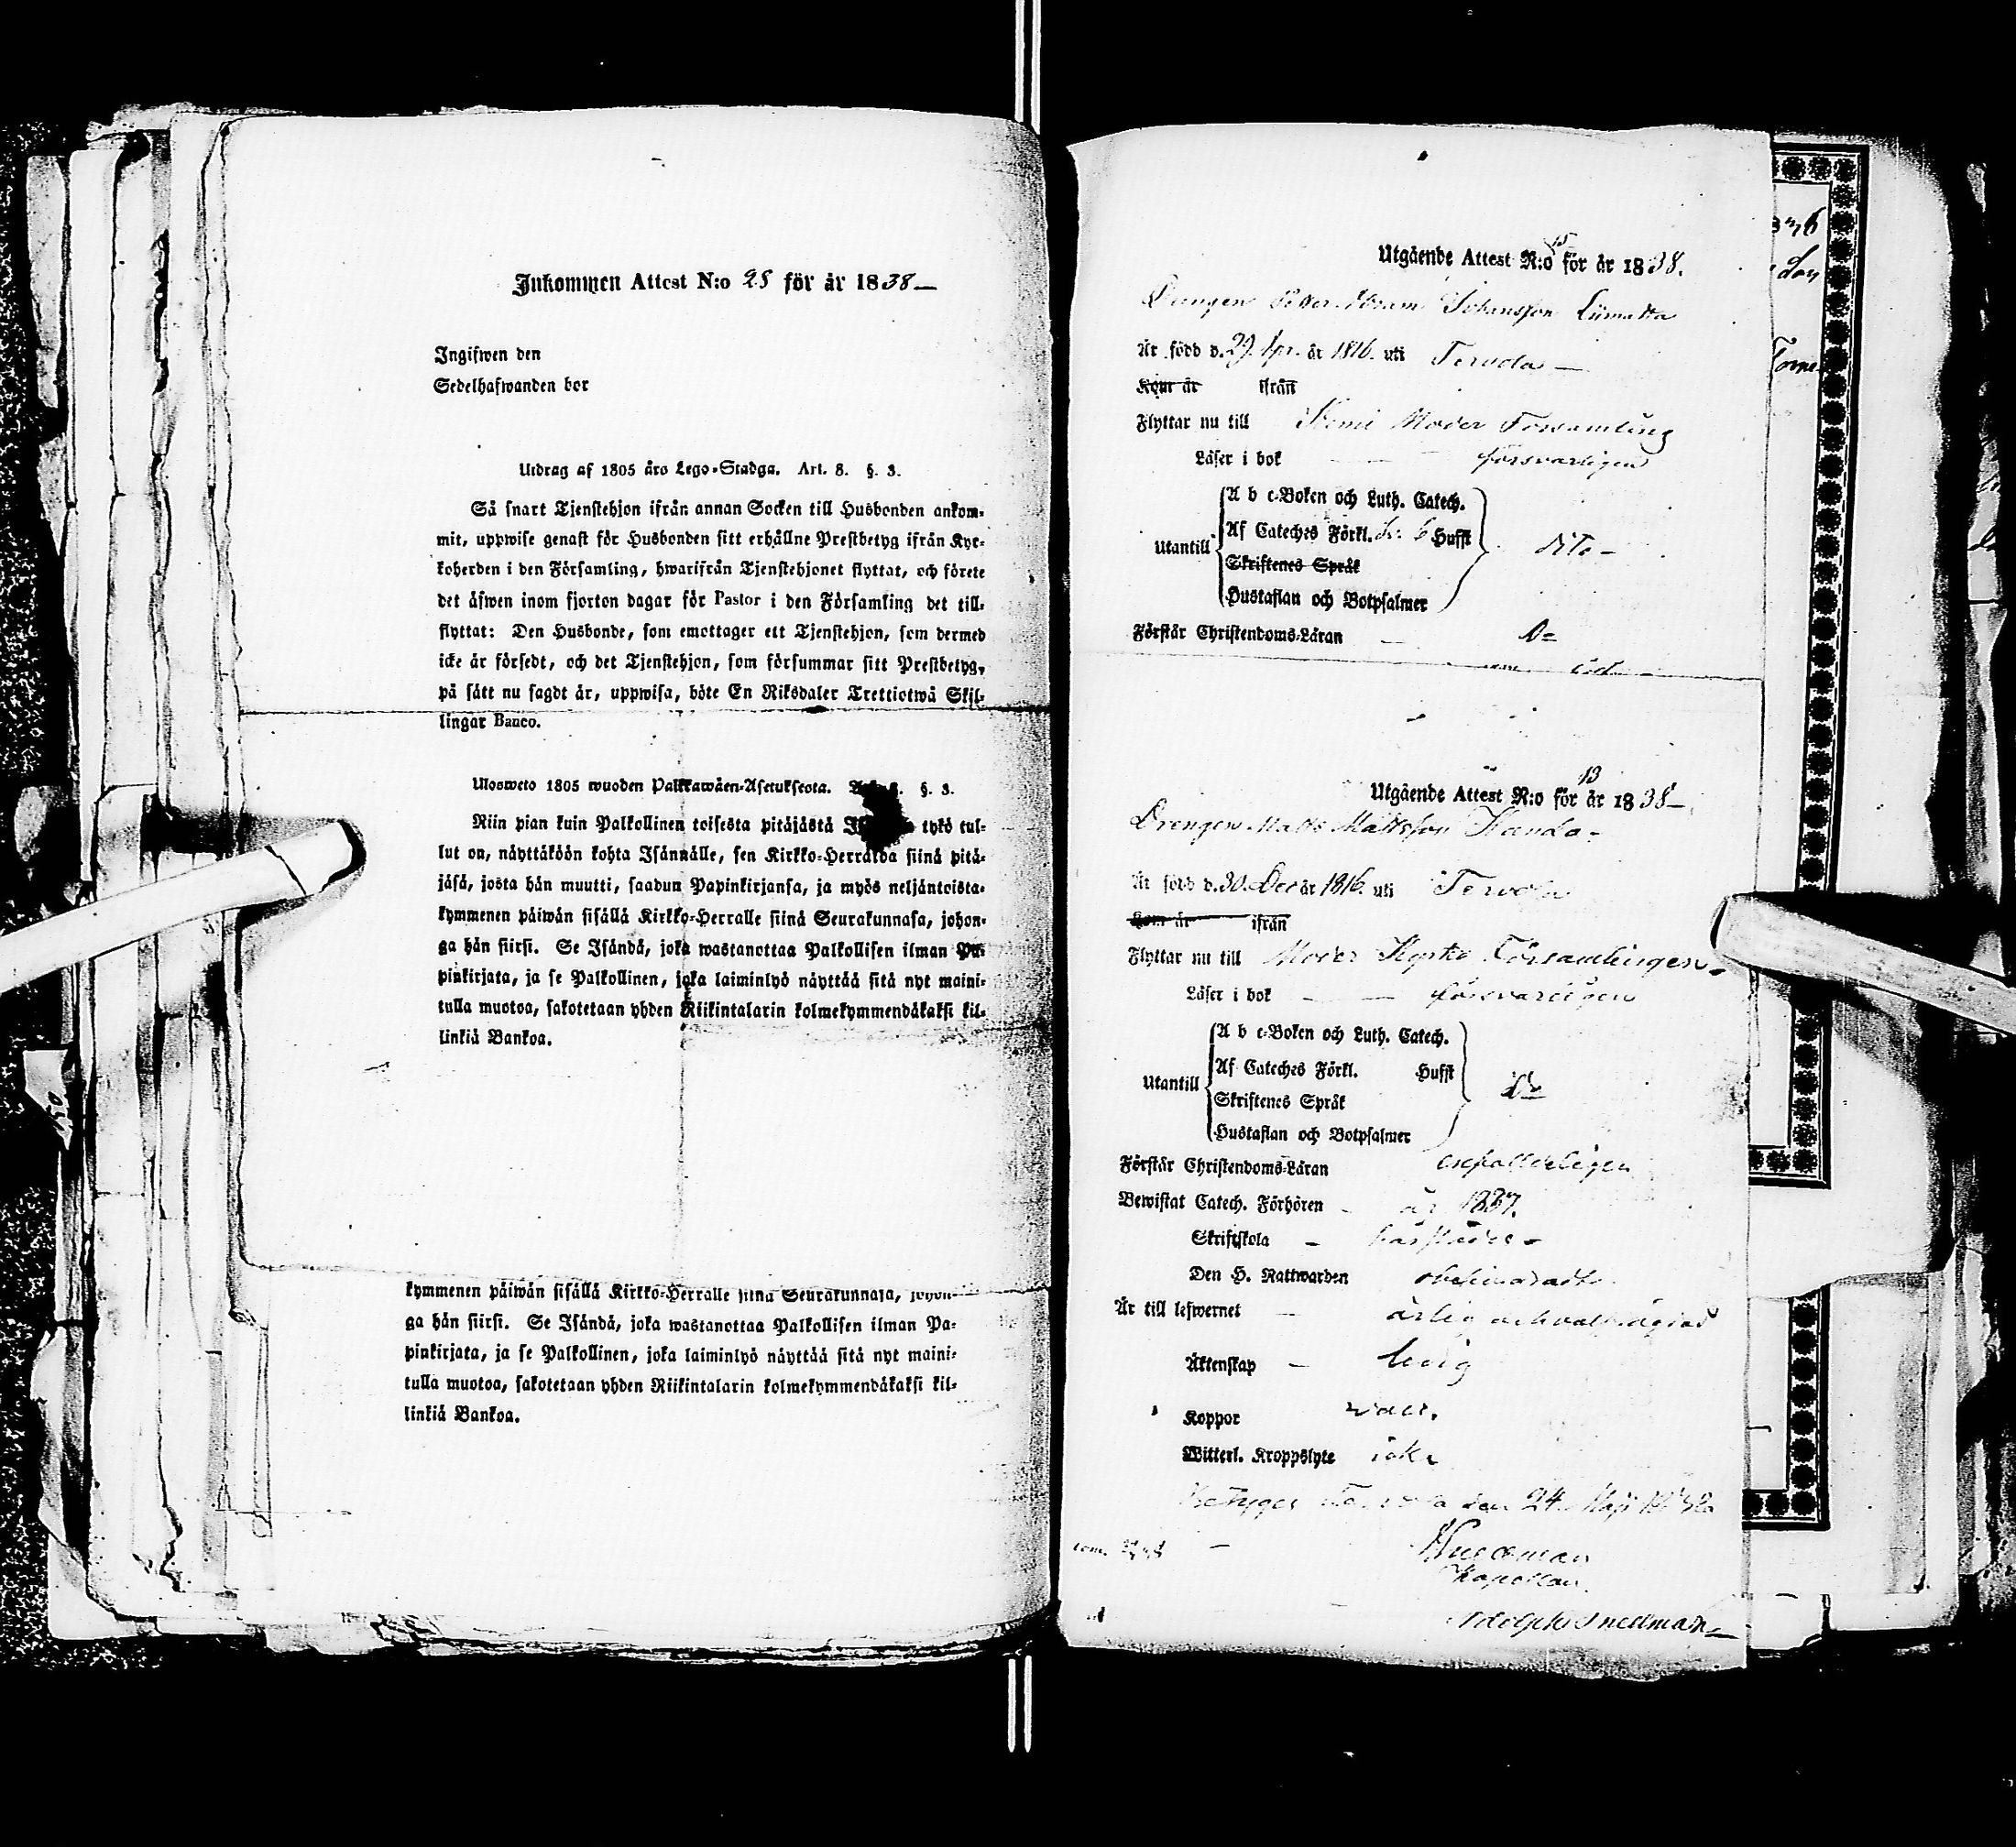 Inkommen Attest N:o 25 för år 1838
Ingifwen den
Sedelhafwanden bor
Utdrag af 1805 års Lego-Stadga. Art. 8. §. 3.
Så snart Tjenstehjon ifrån annan Socken till Husbonden ankom-
mit, uppwise genast för Husbonden sitt erhållne Prestbetyg ifrån Kyr-
koherden i den Församling, hwarifrån Tjenstehjonet flyttat, och förete
det äfwen inom fjorton dagar för Pastor i den Församling det till-
flyttat: Den Husbonde, som emottager ett Tjenstehjon, som dermed
icke är försedt, och det Tjenstehjon, som försummar sitt Prestbetyg,
på sätt nu sagdt är, uppwisa, böte En Riksdaler Trettiotwå Skil-
lingar Banco.
Ulosweto 1805 wuoden Palkkawäen-Asetuksesta. §. 3.
Niin pian kuin Palkollinen toisesta pitäjästä tykö tul-
lut on, näyttäköön kohta Isännälle, sen Kirkko-Herralda siinä pitä-
jäsä, josta hän muutti, saadun Papinkirjansa, ja myös neljäntoista-
kymmenen päiwän sisällä Kirkko-Herralle siinä Seurakunnasa, johon-
ga hän siirsi. Se Isändä, joka wastanottaa Palkollisen ilman Pa-
pinkirjata, ja se Palkollinen, joka laiminlyö näyttää sitä nyt maini-
tulla muotoa, sakotetaan yhden Riikintalarin kolmekymmendäkaksi kil-
linkiä Bankoa.
kymmenen päiwän sisällä Kirkko-Herralle siinä Seurakunnasa, johon-
ga hän siirsi. Se Isändä, joka wastanottaa Palkollisen ilman Pa-
pinkirjata, ja se Palkollinen, joka laiminlyö näyttää sitä nyt maini-
tulla muotoa, sakotetaan yhden Riikintalarin kolmekymmendäkaksi kil-
linkiä Bankoa.
Utgående Attest N:o 15 för år 1838.
Drengen Petter Abram Johansson Liimatta
Är född d. 29 Apr. år 1816. uti Tervola
Kom år ifrån
Flyttar nu till Kemi Moder Församling
Läser i bok försvarligen
Utantill
A b c-Boken och Luth. Catech.
Af Cateches Förkl. 6 Hufst
Skriftenes Språk
Hustaflan och Botpsalmer
dito
Förstår Christendoms-Läran Do
Utgående Attest N:o 13 för år 1838
Drengen Matts Mattsson Kauda
Är född d. 30. Dec år 1816. uti Tervola
Kom år ifrån
Flyttar nu till Moder Kyrko Församlingen
Läser i bok försvarligen
Utantill
A b c-Boken och Luth. Catech.
Af Cateches Förkl. Hufst
Skriftenes Språk
Hustaflan och Botpsalmer
Do
Förstår Christendoms-Läran enfalldeligen
Bewistat Catech. Förhören år 1837.
Skriftskola härstädes
Den H. Nattwarden obehindradt
Är till lefwernet ärlig och välfrägdad
Äktenskap ledig
Koppor
Witterl. Kroppslyte icke
Betygar Tervola den 24 Maji 1838
Snellman
Kapellan.
Adolph Snellman